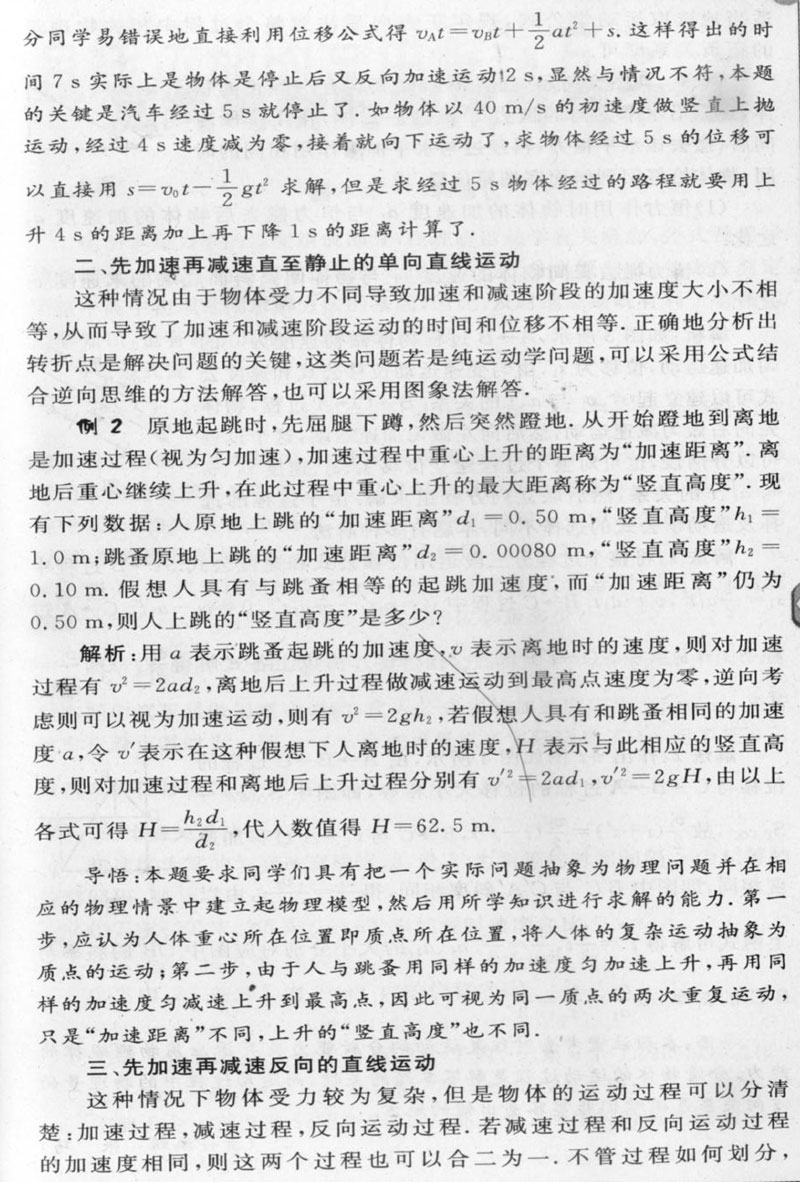 分同学易错误地直接利用位移公式得 v_A t=v_B t+1/2 at²+s. 这样得出的时
间 7 s 实际上是物体是停止后又反向加速运动 2 s,显然与情况不符,本题
的关键是汽车经过 5 s 就停止了. 如物体以 40 m/s 的初速度做竖直上抛
运动,经过 4 s 速度减为零,接着就向下运动了,求物体经过 5 s 的位移可
以直接用 s=v₀t-1/2 gt² 求解,但是求经过 5 s 物体经过的路程就要用上
升 4 s 的距离加上再下降 1 s 的距离计算了.
二、先加速再减速直至静止的单向直线运动
这种情况由于物体受力不同导致加速和减速阶段的加速度大小不相
等,从而导致了加速和减速阶段运动的时间和位移不相等. 正确地分析出
转折点是解决问题的关键,这类问题若是纯运动学问题,可以采用公式结
合逆向思维的方法解答,也可以采用图象法解答.
例 2 原地起跳时,先屈腿下蹲,然后突然蹬地. 从开始蹬地到离地
是加速过程(视为匀加速),加速过程中重心上升的距离为“加速距离”. 离
地后重心继续上升,在此过程中重心上升的最大距离称为“竖直高度”. 现
有下列数据:人原地上跳的“加速距离”d₁=0. 50 m,“竖直高度”h₁=
1. 0 m;跳蚤原地上跳的“加速距离”d₂=0. 00080 m,“竖直高度”h₂=
0. 10 m. 假想人具有与跳蚤相等的起跳加速度,而“加速距离”仍为
0. 50 m,则人上跳的“竖直高度”是多少?
解析:用 a 表示跳蚤起跳的加速度,v 表示离地时的速度,则对加速
过程有 v²=2ad₂,离地后上升过程做减速运动到最高点速度为零,逆向考
虑则可以视为加速运动,则有 v²=2gh₂,若假想人具有和跳蚤相同的加速
度 a,令 v′表示在这种假想下人离地时的速度,H 表示与此相应的竖直高
度,则对加速过程和离地后上升过程分别有 v′²=2ad₁,v′²=2gH,由以上
各式可得 H=h₂d₁/d₂,代人数值得 H=62. 5 m.
导悟:本题要求同学们具有把一个实际问题抽象为物理问题并在相
应的物理情景中建立起物理模型,然后用所学知识进行求解的能力. 第一
步,应认为人体重心所在位置即质点所在位置,将人体的复杂运动抽象为
质点的运动;第二步,由于人与跳蚤用同样的加速度匀加速上升,再用同
样的加速度匀减速上升到最高点,因此可视为同一质点的两次重复运动,
只是“加速距离”不同,上升的“竖直高度”也不同.
三、先加速再减速反向的直线运动
这种情况下物体受力较为复杂,但是物体的运动过程可以分清
楚:加速过程,减速过程,反向运动过程. 若减速过程和反向运动过程
的加速度相同,则这两个过程也可以合二为一. 不管过程如何划分,